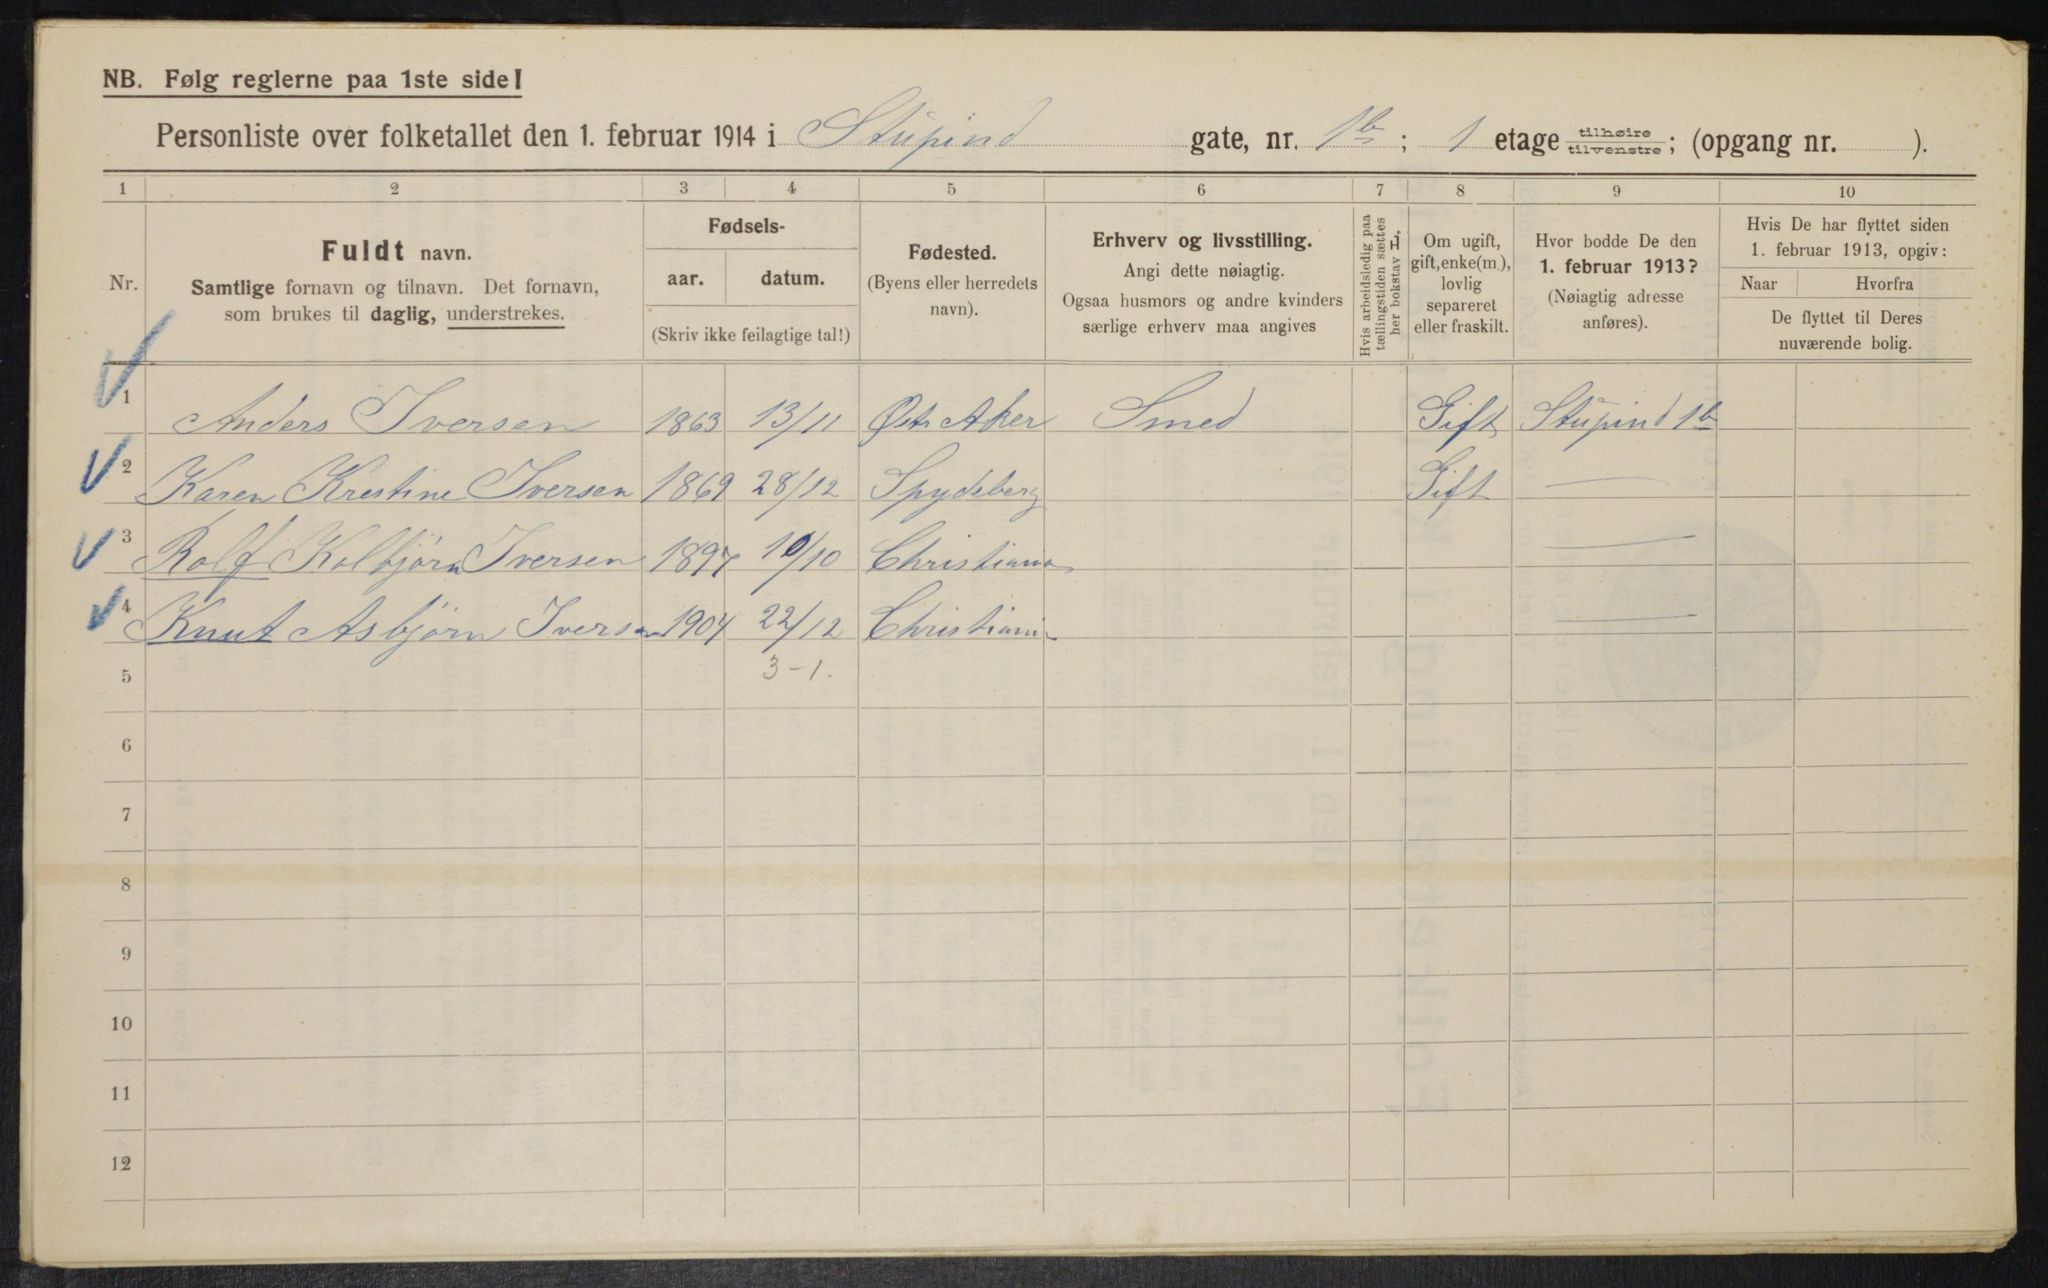 NB. Følg reglerne paa 1ste side!
Personliste over folketallet den 1. februar 1914 i Stupind gate, nr. 1b; 1 etage tilhøire tilvenstre; (opgang nr. ).
1 2 3 4 5 6 7 8 9 10
Nr.
Fuldt navn.
Samtlige fornavn og tilnavn. Det fornavn,
som brukes til daglig, understrekes.
Fødsels-
aar. datum.
(Skriv ikke feilagtige tal!)
Fødested.
(Byens eller herredets
navn).
Erhverv og livsstilling.
Angi dette nøiagtig.
Ogsaa husmors og andre kvinders
særlige erhverv maa angives
Hvis arbeidsledig paa
tællingstiden sættes
her bokstav L.
Om ugift,
gift, enke(m.),
lovlig
separeret
eller fraskilt.
Hvor bodde De den
1. februar 1913?
(Nøiagtig adresse
anføres).
Hvis De har flyttet siden
1. februar 1913, opgiv:
Naar Hvorfra
De flyttet til Deres
nuværende bolig.
1 Anders Iversen 1863 13/11 Østr Aker Smed Gift Stupind 1b
2 Karen Krestine Iversen 1869 28/12 Spydeberg Gift —
3 Rolf Kolbjørn Iversen 1897 10/10 Christiania —
4 Knut Asbjørn Iversen 1904 22/12 Christiania —
5 3-1.
6
7
8
9
10
11
12